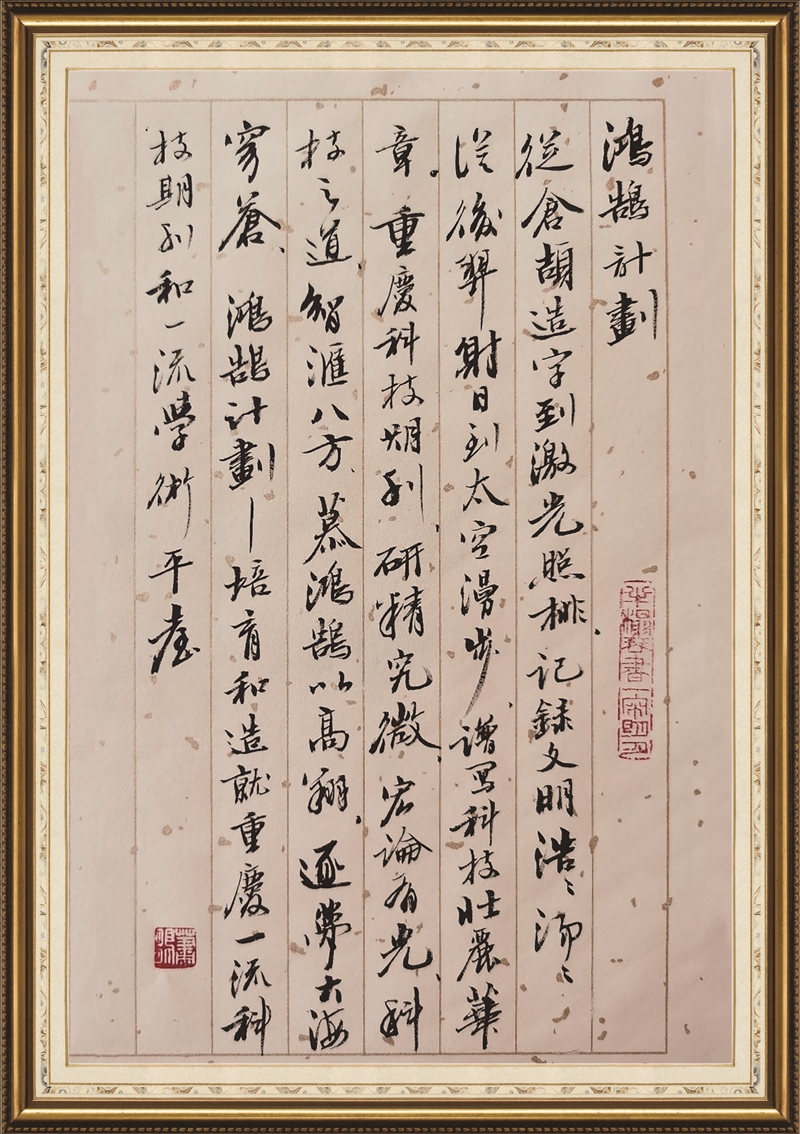 鴻鵠計劃
從倉頡造字到激光照排、記録文明浩々湯々
從後羿射日到太空漫步、譜寫科技壯麗華
章。重慶科技期刊、研精究微、宏論有光、科
技之道、智滙八方、慕鴻鵠以高翔、逐夢大海
穹蒼、鴻鵠計劃—培育和造就重慶一流科
技期刊和一流學術平臺